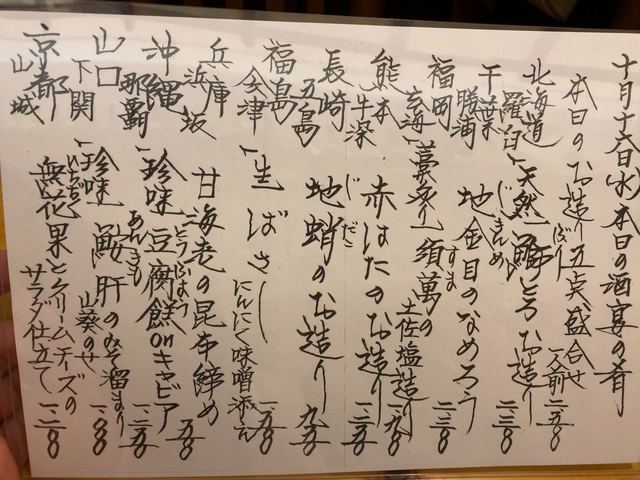 十月十六日(水)本日の酒宴の肴
本日のお造り五点盛合せ 一人前 二二五〇
北海道 羅臼 天然鰤とろお造り 一、二三〇
千葉 勝浦 地金目のなめろう 一、二三〇
じきんめ
福岡 玄海 藁炙り須萬の土佐塩造り 一、二八〇
すま
熊本 牛深 赤はたのお造り 一、二三〇
長崎 五島 地蛸のお造り 九五〇
じだこ
福島 会津 生ばさし にんにく味噌添え 一、二五〇
兵庫 浜坂 甘海老の昆布締め 九五〇
沖縄 那覇 珍味 豆腐餻onキャビア 一、二五〇
とうふよう
山口 下関 珍味 鮟肝のみそ溜まり 山葵のせ 一、一〇〇
あんきも
京都 山城 無花果とクリームチーズのサラダ仕立て 一、二三〇
いちじく